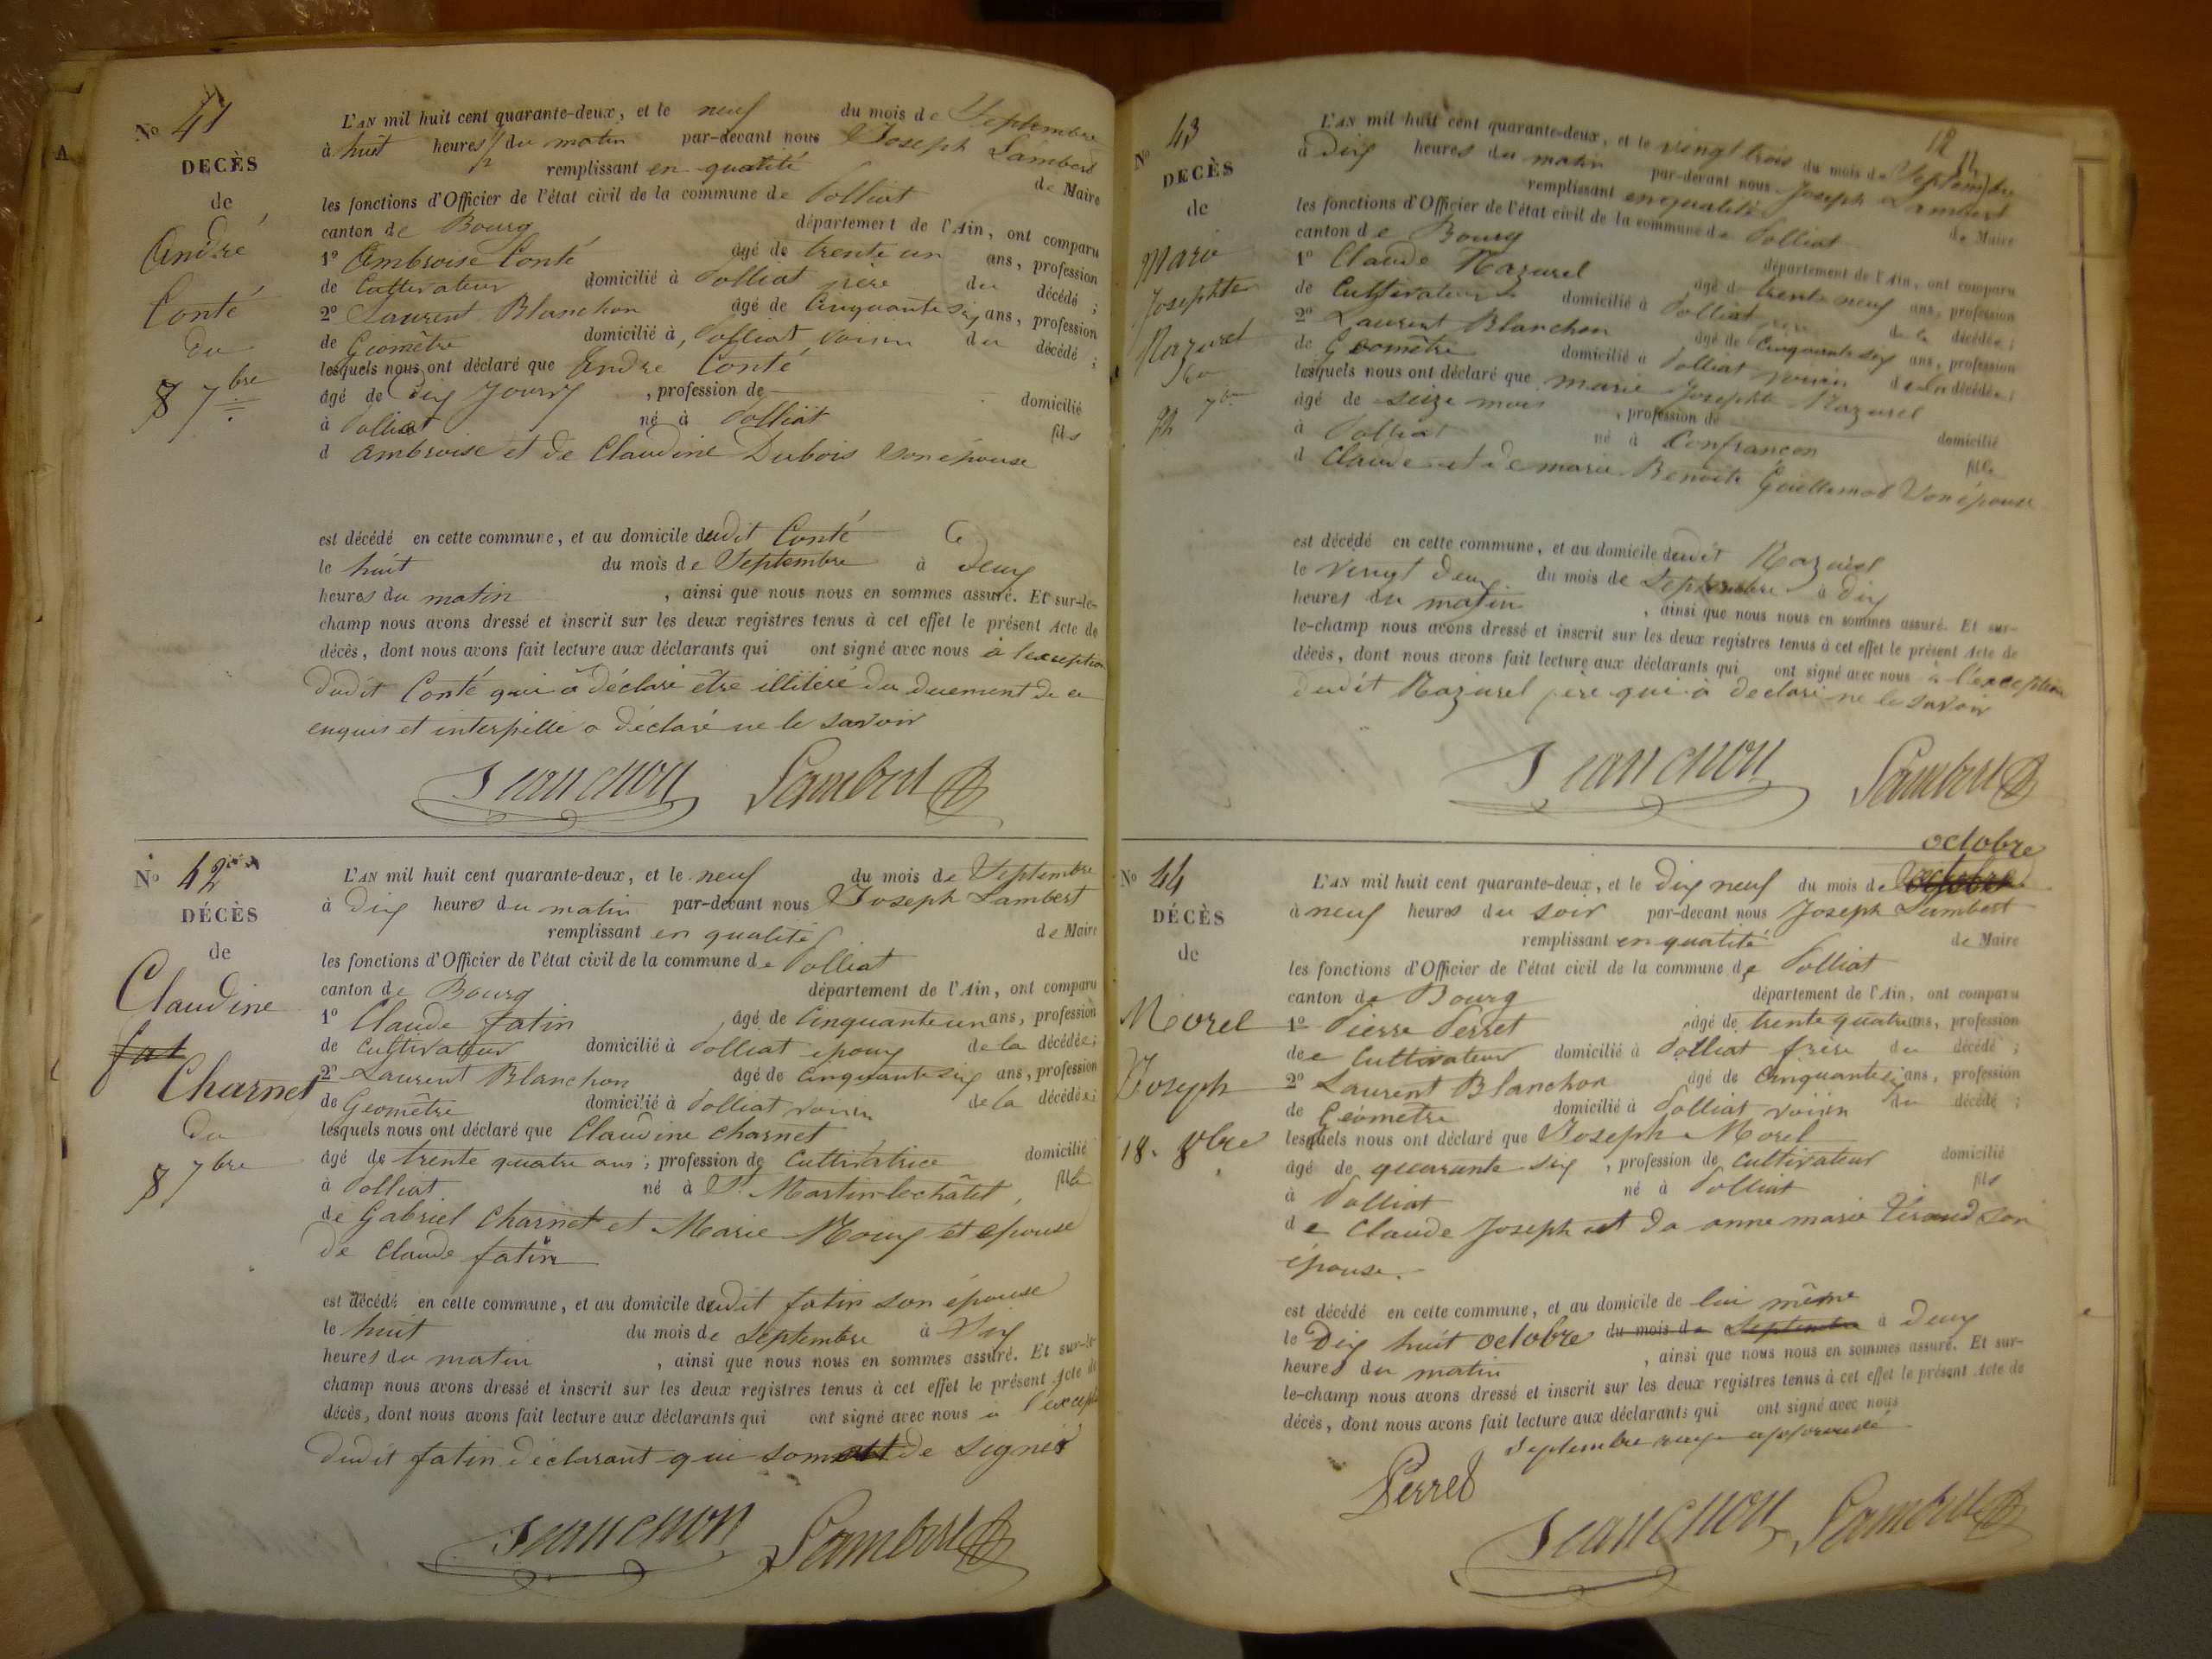 Nº 41
DECÈS
de
André
Conté
du
8 7bre
L'AN mil huit cent quarante-deux, et le neuf du mois de Septembre
à huit heures 1/2 du matin par-devant nous Joseph Lambert
remplissant en qualité de Maire
les fonctions d'Officier de l'état civil de la commune de Polliat
canton de Bourg département de l'Ain, ont comparu
1º Ambroise Conté âgé de trente un ans, profession
de Cultivateur domicilié à Polliat père du décédé ;
2º Laurent Blanchon âgé de Cinquante six ans, profession
de Géomètre domicilié à Polliat voisin du décédé ;
lesquels nous ont déclaré que André Conté
âgé de Dix jours , profession de domicilié
à Polliat né à Polliat fils
d ambroise et de Claudine Dubois son épouse
est décédé en cette commune, et au domicile dudit Conté Ce
le huit du mois de Septembre à Deux
heures du matin , ainsi que nous nous en sommes assuré. Et sur-le-
champ nous avons dressé et inscrit sur les deux registres tenus à cet effet le présent Acte de
décès, dont nous avons fait lecture aux déclarants qui ont signé avec nous à l'exception
dudit Conté qui à déclaré être illitéré du duement de ce
enquis et interpellé a déclaré ne le savoir
Blanchon Lambert
Nº 42
DÉCÈS
de
Claudine
fat
Charnet
du
8 7bre
L'AN mil huit cent quarante-deux, et le neuf du mois de Septembre
à Dix heures du matin par-devant nous Joseph Lambert
remplissant en qualité de Maire
les fonctions d'Officier de l'état civil de la commune de Polliat
canton de Bourg département de l'Ain, ont comparu
1º Claude fatin âgé de Cinquante un ans, profession
de Cultivateur domicilié à Polliat epoux de la décédée ;
2º Laurent Blanchon âgé de cinquante six ans, profession
de Géomètre domicilié à Polliat voisin de la décédée ;
lesquels nous ont déclaré que Claudine charnet
âgé de trente quatre ans ; profession de Cultivatrice domicilié
à Polliat né à St Martin-le-châtel, fille
de Gabriel Charnet et Marie Roux et epouse
de Claude fatin
est décédé en cette commune, et au domicile dudit fatin son épouse
le huit du mois de Septembre à Six
heures du matin , ainsi que nous nous en sommes assuré. Et sur-le-
champ nous avons dressé et inscrit sur les deux registres tenus à cet effet le présent Acte de
décès, dont nous avons fait lecture aux déclarants qui ont signé avec nous à l'excep
dudit fatin déclarant qui de signer
Blanchon Lambert
12
Nº 43
DECÈS
de
Marie
Josephte
Razurel
L'AN mil huit cent quarante-deux, et le vingt trois du mois de Septembre
à Dix heures du matin par-devant nous Joseph Lambert
remplissant en qualité de Maire
les fonctions d'Officier de l'état civil de la commune de Polliat
canton de Bourg département de l'Ain, ont comparu
1º Claude Razurel âgé de trente neuf ans, profession
de Cultivateur domicilié à Polliat père de la décédée ;
2º Laurent Blanchon âgé de Cinquante six ans, profession
de Géomètre domicilié à Polliat voisin de la décédée ;
lesquels nous ont déclaré que marie Josephte Razurel
âgé de seize mois , profession de domicilié
à Polliat né à Confrançon fille
d Claude et de marie Benoite Guillemot son épouse
est décédé en cette commune, et au domicile dudit Razurel
le vingt Deux du mois de Septembre à Dix
heures du matin , ainsi que nous nous en sommes assuré. Et sur-
le-champ nous avons dressé et inscrit sur les deux registres tenus à cet effet le présent Acte de
décès, dont nous avons fait lecture aux déclarants qui ont signé avec nous à l'exception
dudit Razurel père qui à déclaré ne le savoir
Blanchon Lambert
Nº 44
DÉCÈS
de
Morel
Joseph
18. 8bre
octobre
L'AN mil huit cent quarante-deux, et le Dix neuf du mois de octobre
à neuf heures du soir par-devant nous Joseph Lambert
remplissant en qualité de Maire
les fonctions d'Officier de l'état civil de la commune de Polliat
canton de Bourg département de l'Ain, ont comparu
1º Pierre Perret âgé de trente quatre ans, profession
de Cultivateur domicilié à Polliat frère du décédé ;
2º Laurent Blanchon âgé de Cinquante six ans, profession
de Géomètre domicilié à Polliat voisin du décédé ;
lesquels nous ont déclaré que Joseph Morel
âgé de quarante six , profession de Cultivateur domicilié
à Polliat né à Polliat fils
de Claude Joseph et de anne marie Viraud son
épouse.
est décédé en cette commune, et au domicile de lui même
le Dix huit octobre du mois de Septembre à Deux
heures du matin , ainsi que nous nous en sommes assuré. Et sur-
le-champ nous avons dressé et inscrit sur les deux registres tenus à cet effet le présent Acte de
décès, dont nous avons fait lecture aux déclarants qui ont signé avec nous
Septembre rayé approuvé
Perret Blanchon Lambert